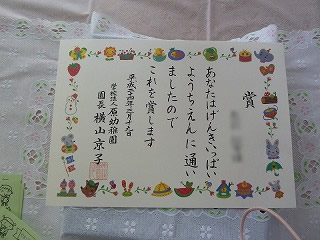 賞
あなたはげんきいっぱい
ようちえんに通い
ましたので
これを賞します
平成二四年三月十九日
学校法人原幼稚園
園長 横山京子